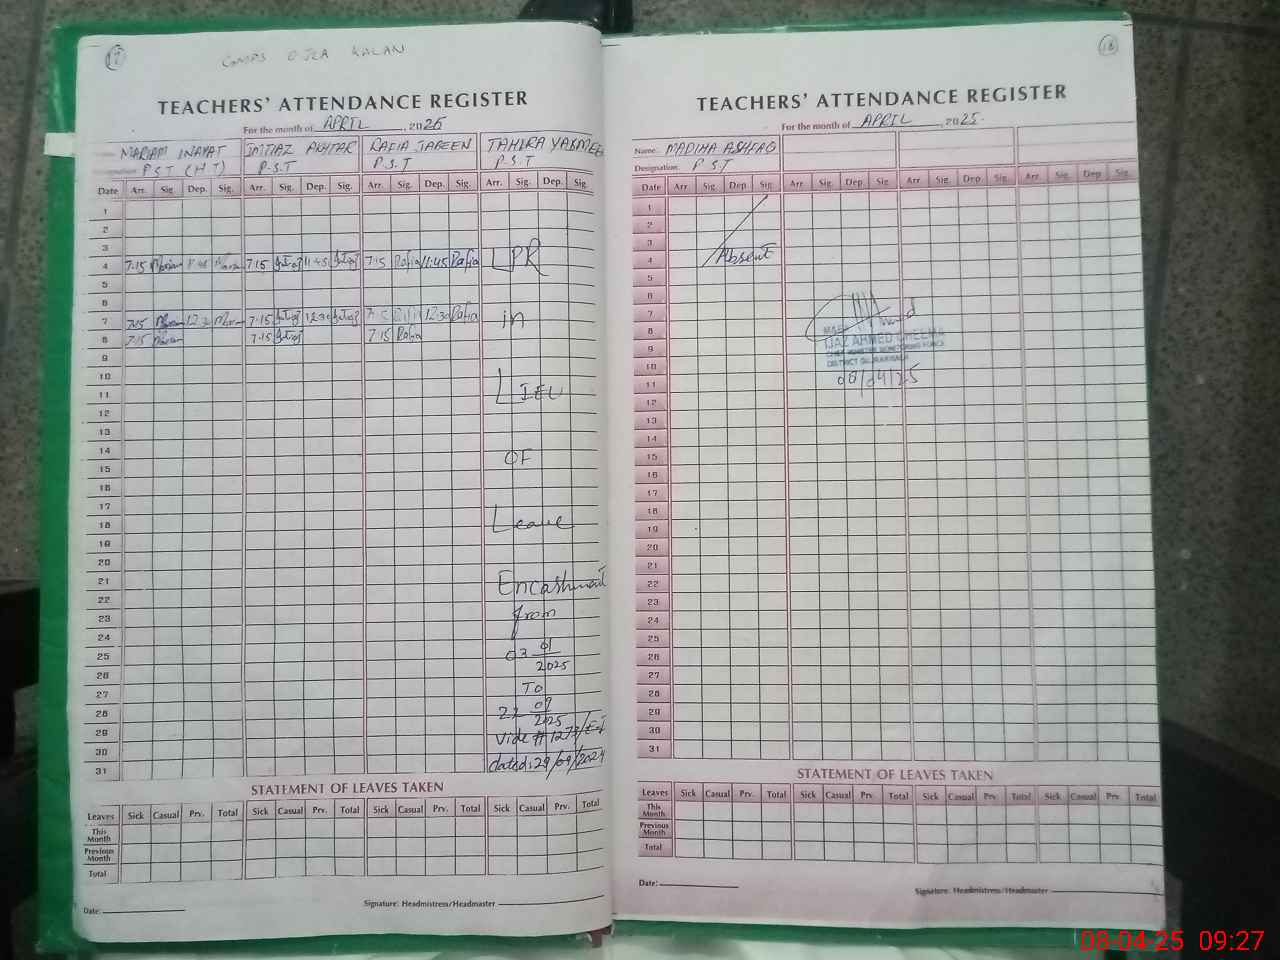 17
GMPS OJLA KALAN
TEACHERS' ATTENDANCE REGISTER
For the month of APRIL, 2025
MARIAM INAYAT IMTIAZ AKHTAR RAFIA JABEEN TAHIRA YASMEE
P.S.T (H T) P.S.T P.S.T P.S.T
Date Arr. Sig. Dep. Sig. Arr. Sig. Dep. Sig. Arr. Sig. Dep. Sig. Arr. Sig. Dep. Sig.
1
2
3
4 7:15 Mariam Mariam 7:15 Imtiaz 11:45 Imtiaz 7:15 Rafia 11:45 Rafia LPR
5
6
7 7:15 Mariam 12:30 Mariam 7:15 Imtiaz 12:30 Imtiaz 7:15 Rafia 12:30 Rafia in
8 7:15 Mariam 7:15 Imtiaz 7:15 Rafia
9
10
11 LIEU
12
13
14
15 OF
16
17
18 Leave
19
20
21 Encashment
22
23 from
24
25 03 01
26 2025
27 To
28 22 07
29 2025
30 Vide # 1273/E-I
31 dated: 29/09/2024
STATEMENT OF LEAVES TAKEN
Leaves Sick Casual Prv. Total Sick Casual Prv. Total Sick Casual Prv. Total Sick Casual Prv. Total
This Month
Previous Month
Total
Date:
Signature: Headmistress/Headmaster
18
TEACHERS' ATTENDANCE REGISTER
For the month of APRIL, 2025.
Name: MADIHA ASHFAQ
Designation: P S T
Date Arr Sig. Dep Sig. Arr. Sig. Dep. Sig. Arr. Sig. Dep. Sig. Arr. Sig. Dep. Sig.
1
2
3
4 Absent
5
6
7
8
9 IJAZ AHMED CHEEMA
10 DISTRICT GUJRANWALA
11 08/04/25
12
13
14
15
16
17
18
19
20
21
22
23
24
25
26
27
28
29
30
31
STATEMENT OF LEAVES TAKEN
Leaves Sick Casual Prv. Total Sick Casual Prv. Total Sick Casual Prv. Total Sick Casual Prv. Total
This Month
Previous Month
Total
Date:
Signature: Headmistress/Headmaster
08-04-25 09:27